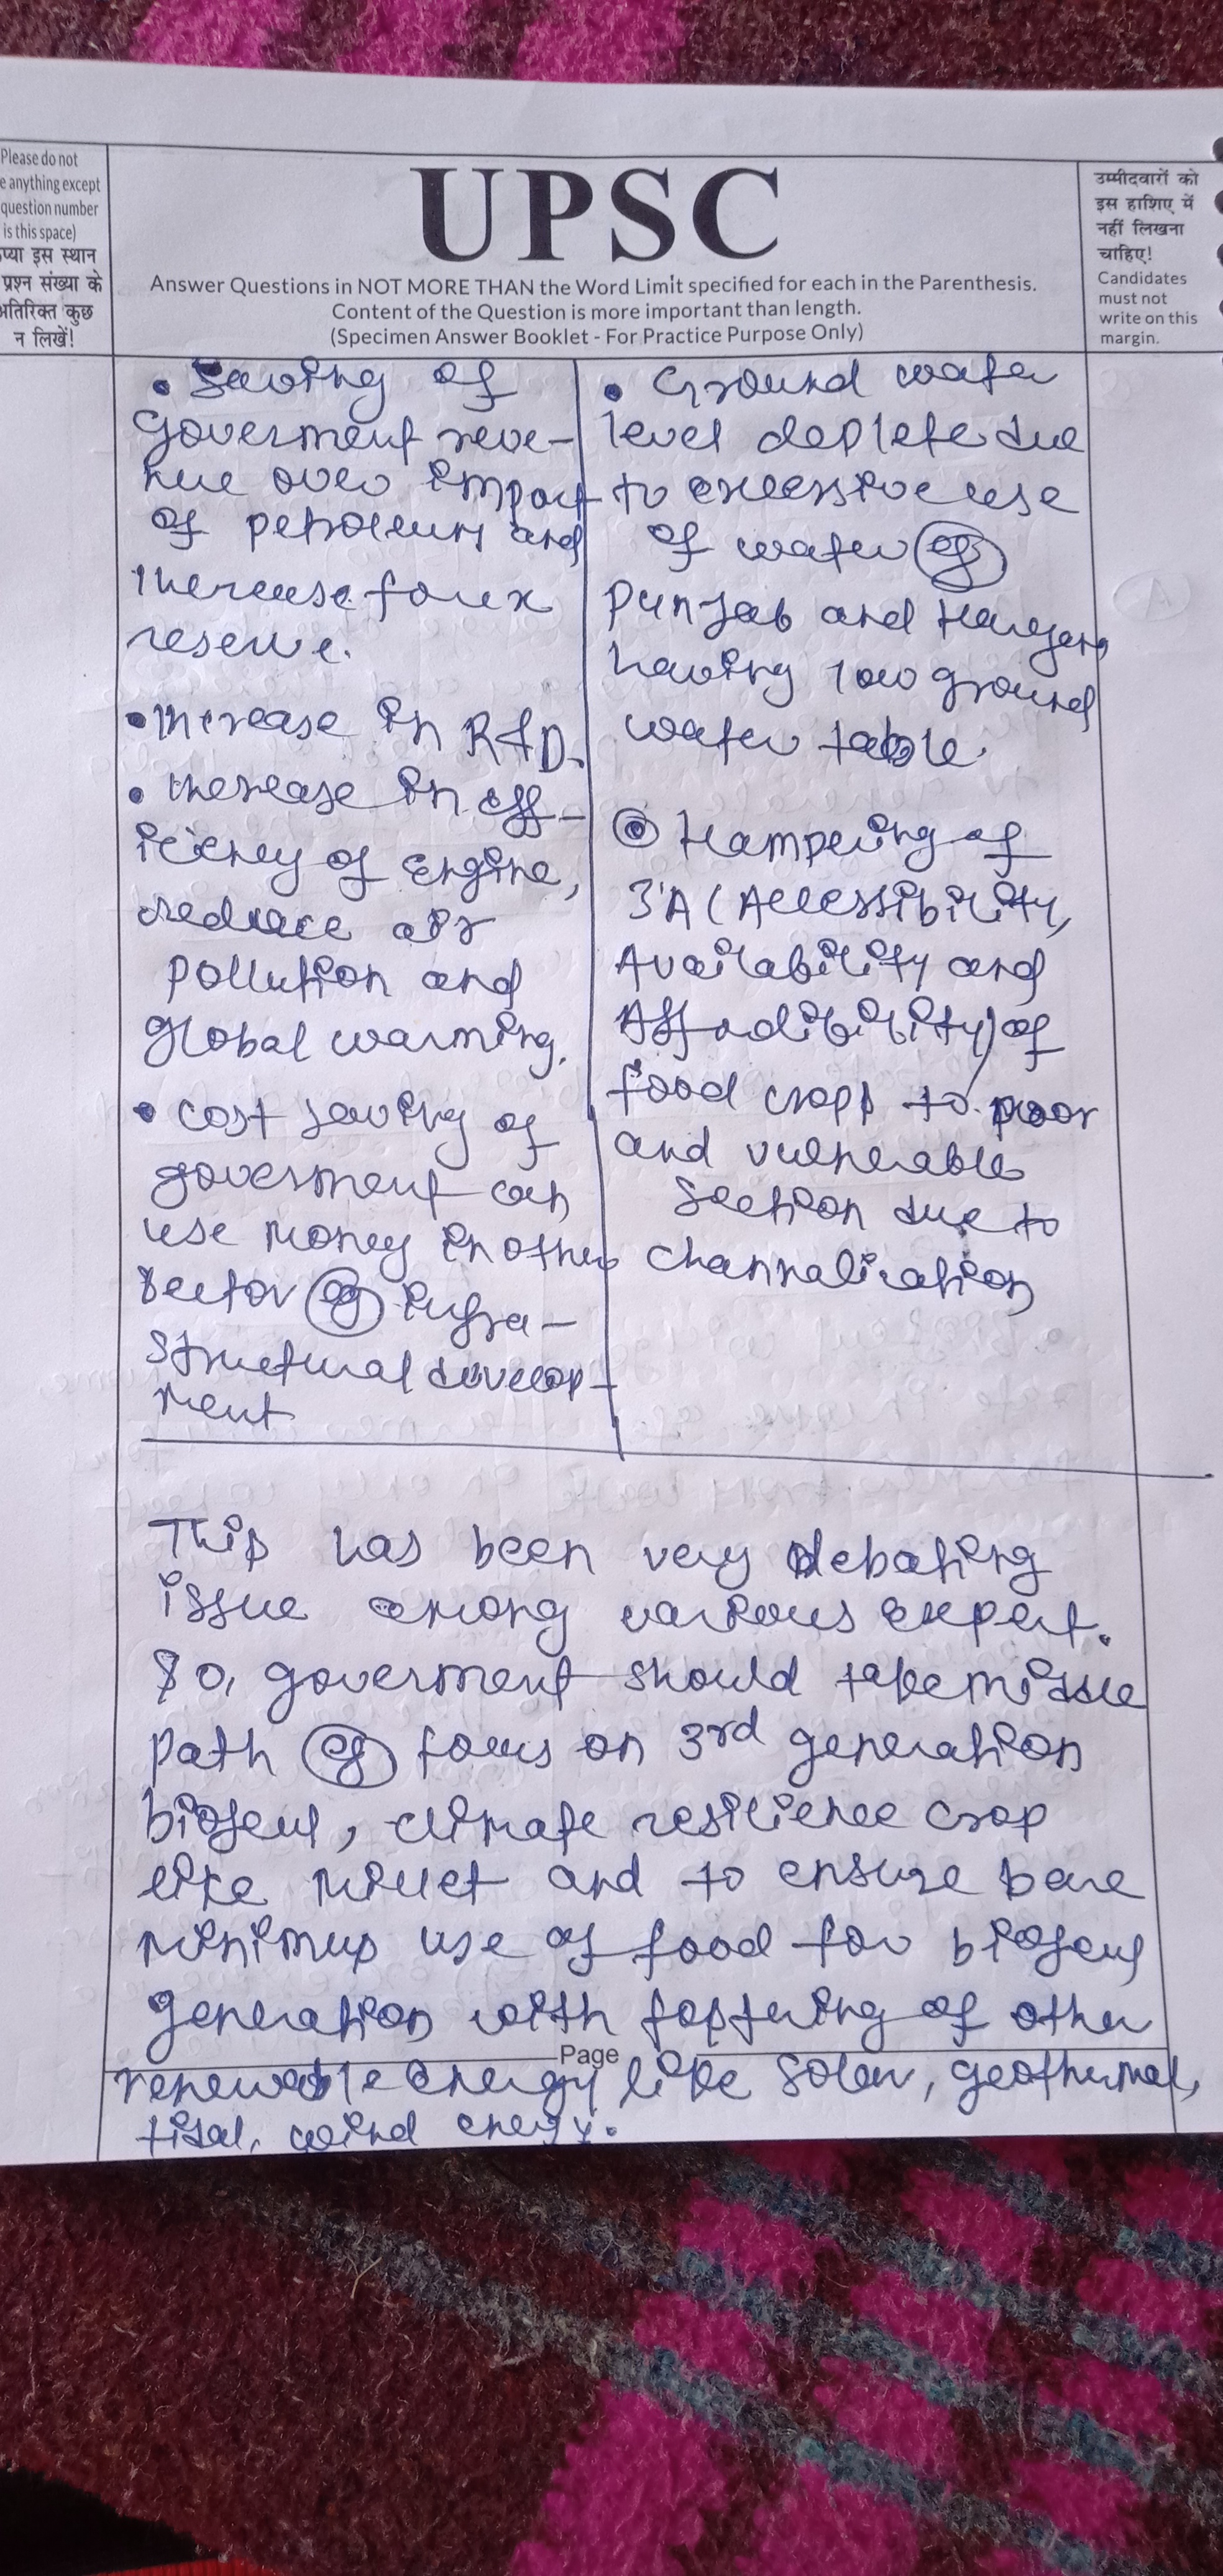 Please do not
e anything except
question number
is this space)
प्या इस स्थान
प्रश्न संख्या के
अतिरिक्त कुछ
न लिखें!
UPSC
Answer Questions in NOT MORE THAN the Word Limit specified for each in the Parenthesis.
Content of the Question is more important than length.
(Specimen Answer Booklet - For Practice Purpose Only)
उम्मीदवारों को
इस हाशिए में
नहीं लिखना
चाहिए!
Candidates
must not
write on this
margin.
• Saving of
Goverment reve-
nue over import
of petroleum and
increase forex
reserve.
• increase in R&D.
• increase in eff-
iciency of engine,
reduce air
pollution and
global warming.
• cost saving of
goverment can
use money in other
sector eg infra-
structural develop-
ment
• Ground water
level deplete due
to excessive use
of water eg
punjab and Haryana
having low ground
water table.
• Hampering of
3'A (Accessibility,
Availability and
Affordibility) of
food crops to poor
and vulnerable
section due to
channalisation
This has been very debating
issue among various expert.
So, goverment should take middle
path eg focus on 3rd generation
biofeul, climate resilience crop
like millet and to ensure bare
minimus use of food for biofeul
generation with fostering of other
Page
renewable energy like solar, geothermal,
tidal, wind energy.